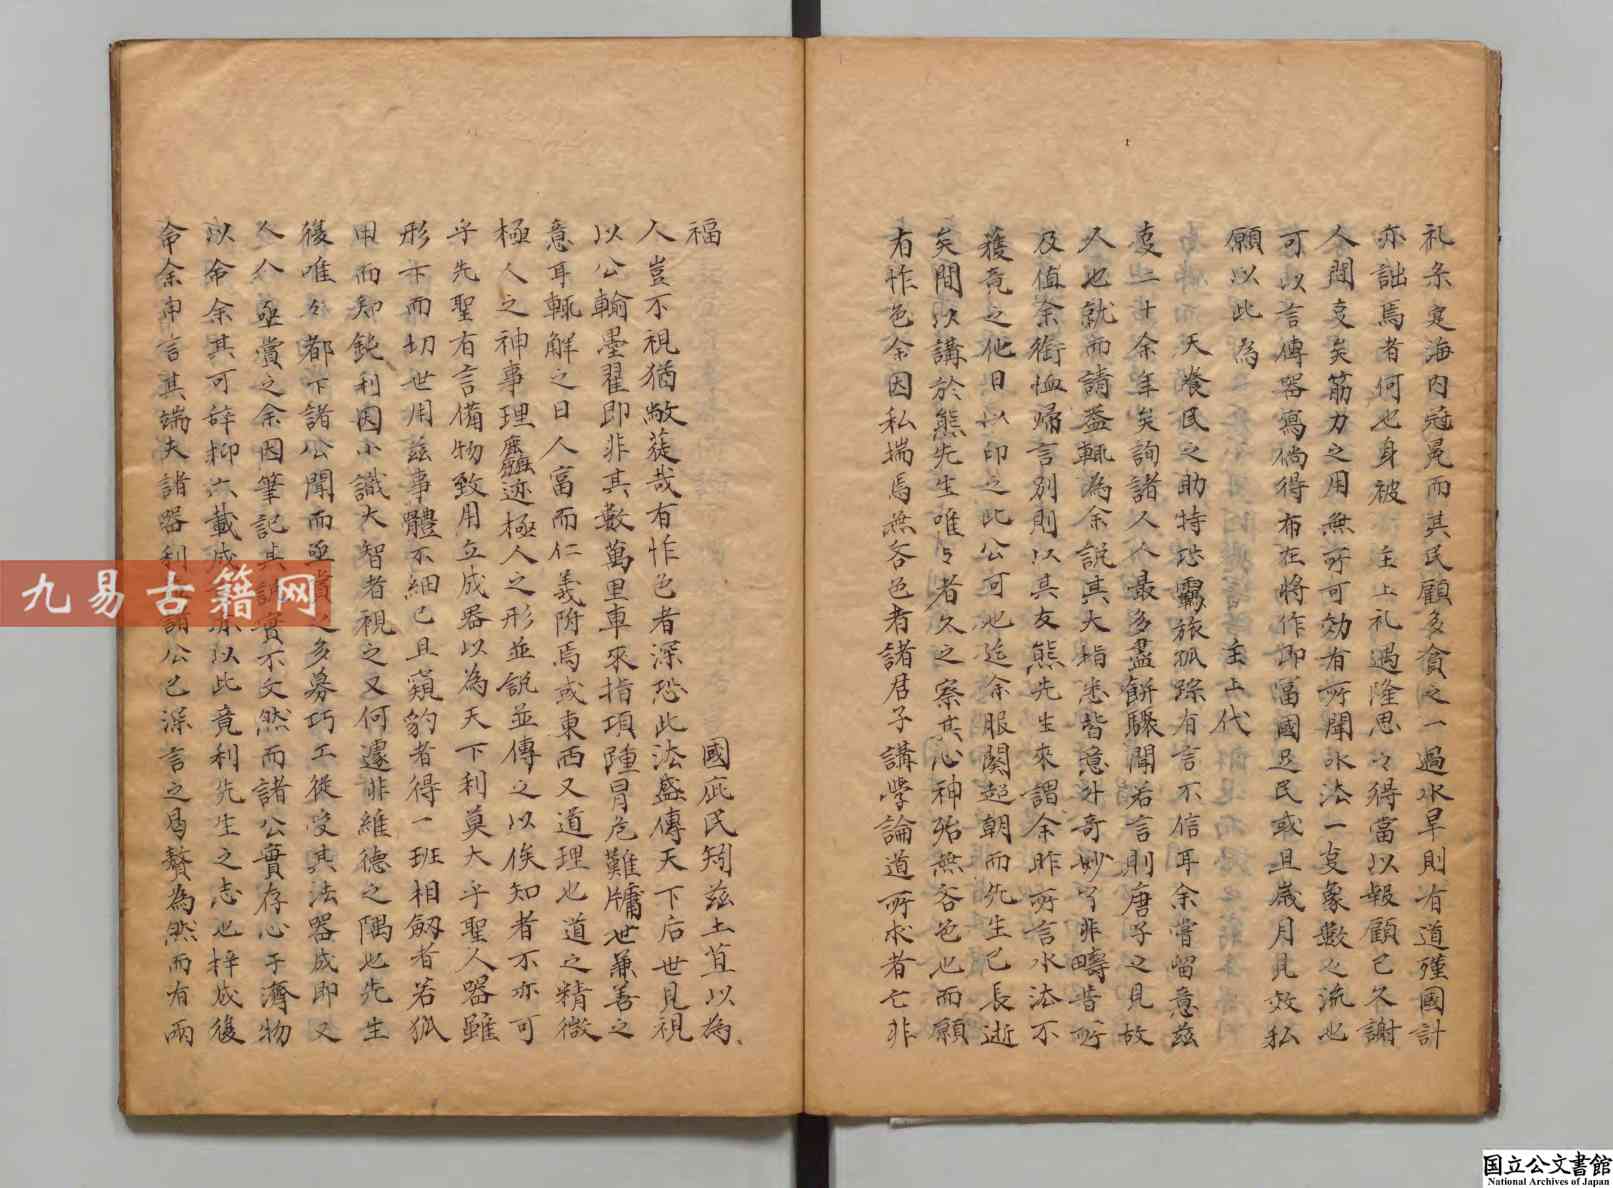 礼樂定海内冠冕而其民顧多貧之一過水旱則有道殣國計
亦詘焉者何也身被 主上礼遇隆思々得當以報顧已不謝
人間㕝矣筋力之用無所可効有所聞水法一㕝象數之流也
可以言傳器寫倘得布在將作即富國足民或且歲月見效私
願以此為 主上代
天養民之助特恐羈旅孤踪有言不信耳余嘗留意茲
㕝二十余年矣詢諸人人最多畫餅驟聞若言則唐子之見故
人也就而請益輒為余說其大指悉皆意外奇妙了非疇昔所
及值余銜恤歸言別則以其友熊先生來謂余昨所言水法不
獲竟之他日以叩之此公可也迄余服闋趨朝而先生已長逝
矣間以講於熊先生唯々者久之察其心神殆無吝色也而願
有怍色余因私揣焉無吝色者諸君子講學論道所求者亡非
福 國庇民矧茲土苴以為
人豈不視猶敝蓰哉有怍色者深恐此法盛傳天下后世見視
以公輸墨翟即非其數萬里車來指頂踵冒危難牖世兼善之
意耳輒解之曰人富而仁義附焉或東西又道理也道之精微
極人之神事理麤迹極人之形並說並傳之以俟知者不亦可
乎先聖有言備物致用立成器以為天下利莫大乎聖人器雖
形下而切世用茲事體不細已且窺豹者得一班相劒者若狐
甲而知鈍利因小識大智者視之又何遽非維德之隅也先生
復唯々都下諸公聞而亟賞之多募巧工從受其法器成即又
人人亟賞之余因筆記其說實不文然而諸公實存心于濟物
以命余其可辞抑亦載成以此竟利先生之志也梓成後
命余申言其端夫諸器利謂公已深言之曷贅為然而有兩
九易古籍网
国立公文書館
National Archives of Japan